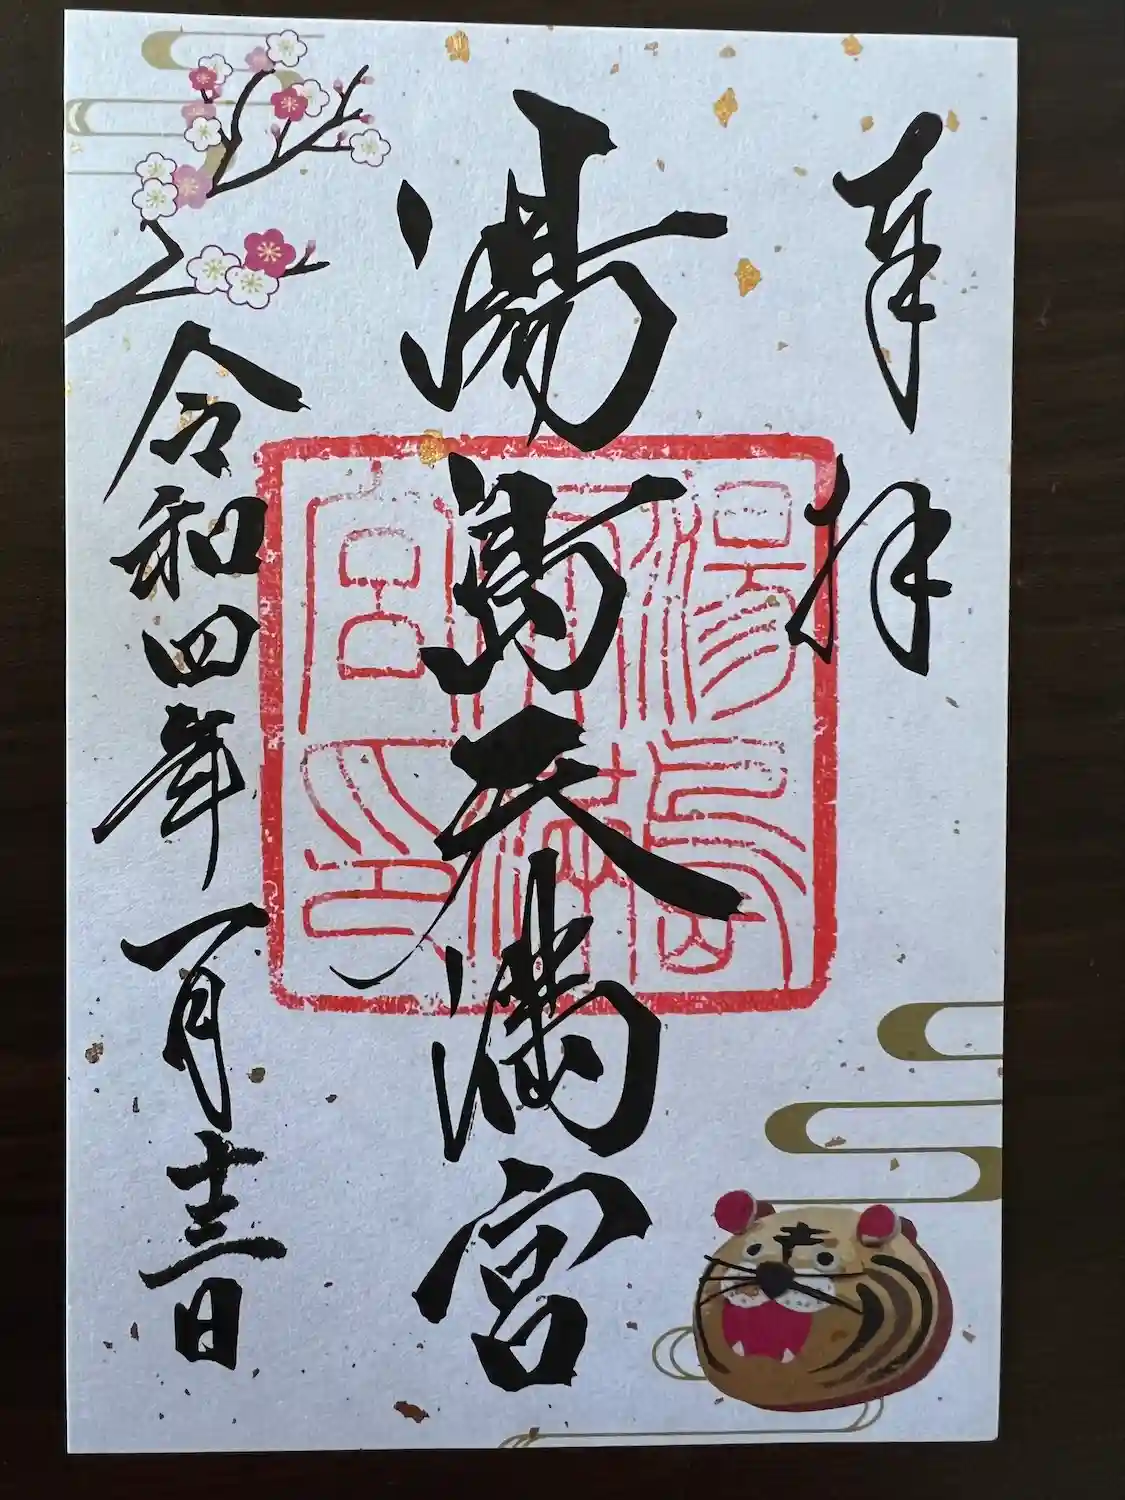 奉拝
湯島天満宮
令和四年一月十三日
湯島天満宮印